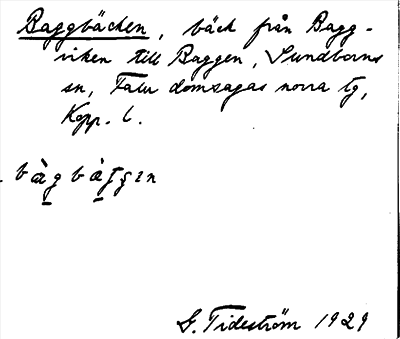 Baggbäcken, bäck från Bagg-
viken till Baggen, Sundborns
sn, Falu domsagas norra tg,
Kopp. l.
bàgbàt̯ʂɛn
G. Tideström 1929